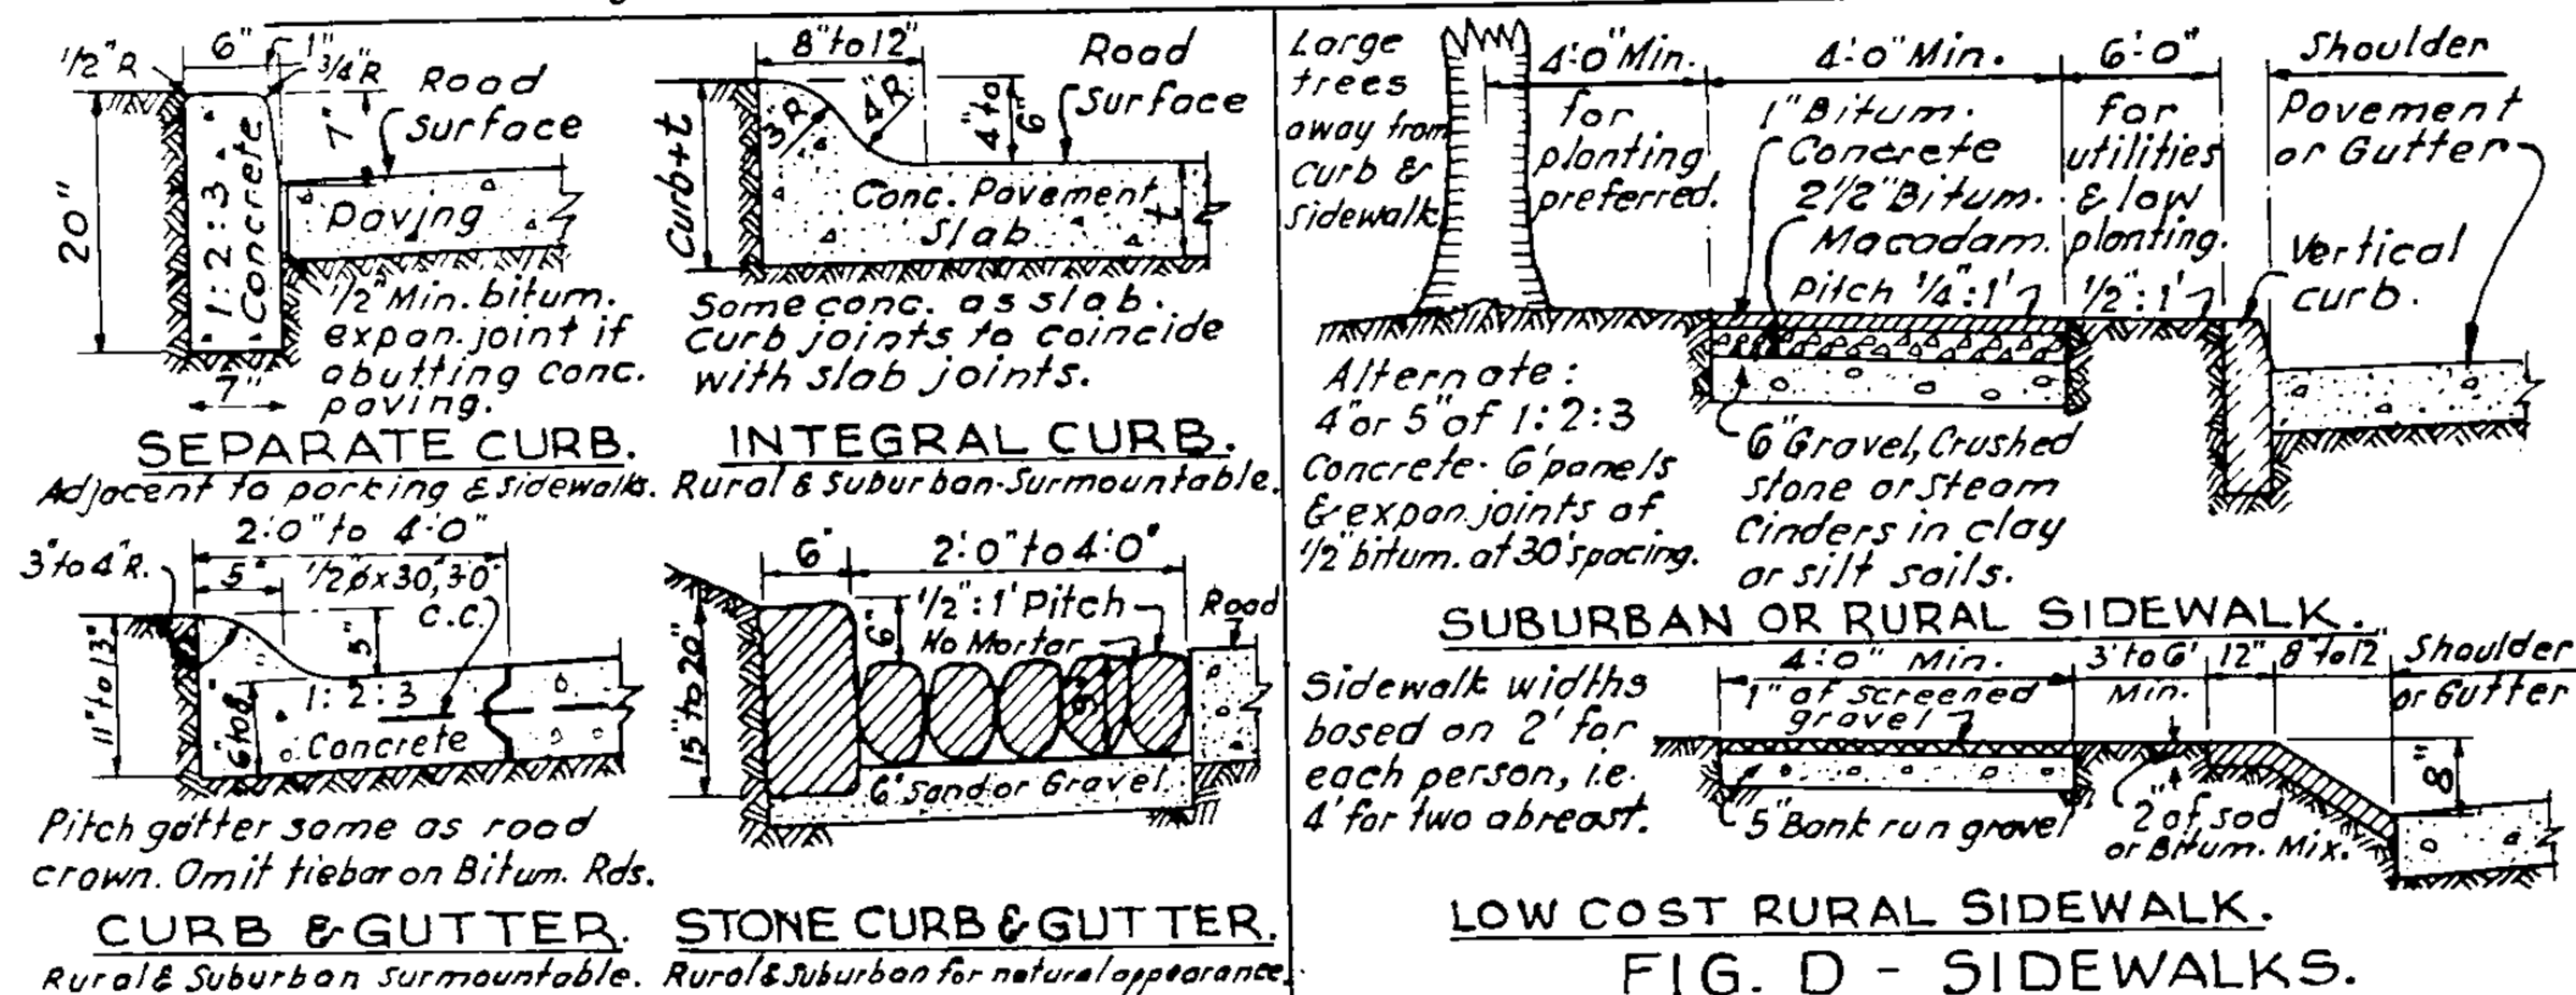 6"
1"
1/2" R
3/4" R
Road
Surface
7"
20"
1:2:3
Concrete
Paving
1/2" Min. bitum.
expan. joint if
abutting conc.
paving.
7"
SEPARATE CURB.
Adjacent to parking & sidewalks.
8" to 12"
Road
Surface
3" R
4" R.
4" to
6"
Curb+t
Conc. Pavement
Slab
t
Same conc. as slab.
Curb joints to coincide
with slab joints.
INTEGRAL CURB.
Rural & Suburban-Surmountable.
2'-0" to 4'-0"
3" to 4" R.
5"
1/2"ø x 30", 3'-0"
C.C.
5"
11" to 13"
6" to 8"
1:2:3
Concrete
Pitch gutter same as road
crown. Omit tiebar on Bitum. Rds.
CURB & GUTTER.
Rural & Suburban Surmountable.
6"
2'-0" to 4'-0"
1/2":1' Pitch
No Mortar
Road
6"
15" to 20"
6" Sand or Gravel
STONE CURB & GUTTER.
Rural & Suburban for natural appearance.
Large
trees
away from
Curb &
Sidewalk
4'-0" Min.
for
planting
preferred.
4'-0" Min.
1" Bitum.
Concrete
2 1/2" Bitum.
Macadam.
Pitch 1/4":1'
6'-0"
for
utilities
& low
planting.
1/2":1'
Shoulder
Pavement
or Gutter
Vertical
curb.
Alternate:
4" or 5" of 1:2:3
Concrete. 6' panels
& expan. joints of
1/2" bitum. at 30' spacing.
6" Gravel, Crushed
stone or Steam
Cinders in clay
or silt soils.
SUBURBAN OR RURAL SIDEWALK.
Sidewalk widths
based on 2' for
each person, i.e.
4' for two abreast.
4'-0" Min.
1" of screened
gravel
3' to 6'
Min.
12"
8" to 12"
Shoulder
or Gutter
8"
5" Bank run gravel
2" of sod
or Bitum. Mix.
LOW COST RURAL SIDEWALK.
FIG. D - SIDEWALKS.